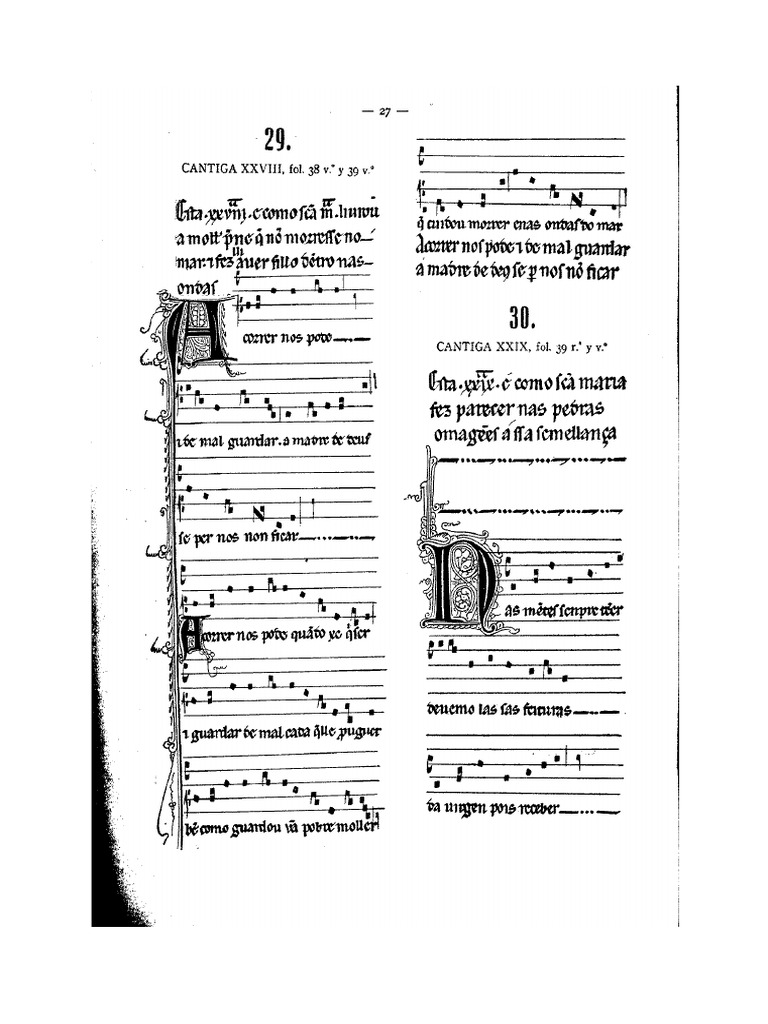 — 27 —
29.
CANTIGA XXVIII, fol. 38 v.° y 39 v.°
Esta .xxviii. é como scā m̄. liurou
a moll' p̄ñe q̄ nō morresse no
mar. ⁊ fez ll auer fillo dētro nas
ondas
Acorrer nos pode
⁊ de mal guardar. a madre de deus
se per nos non ficar
Acorrer nos pode quāto xe q̄ser
⁊ guardar de mal cada q̄lle prouguer
bē como guardou ūa pobre moller
q̄ cuidou morrer enas ondas do mar
Acorrer nos pode ⁊ de mal guardar
a madre de deus se p nos nō ficar
30.
CANTIGA XXIX, fol. 39 r.° y v.°
Esta .xxix. é como scā maria
fez parecer nas pedras
omagēes a ssa semellança
Nas mētes senpre tēer
deuemo las sas feituras
da uirgen pois receber